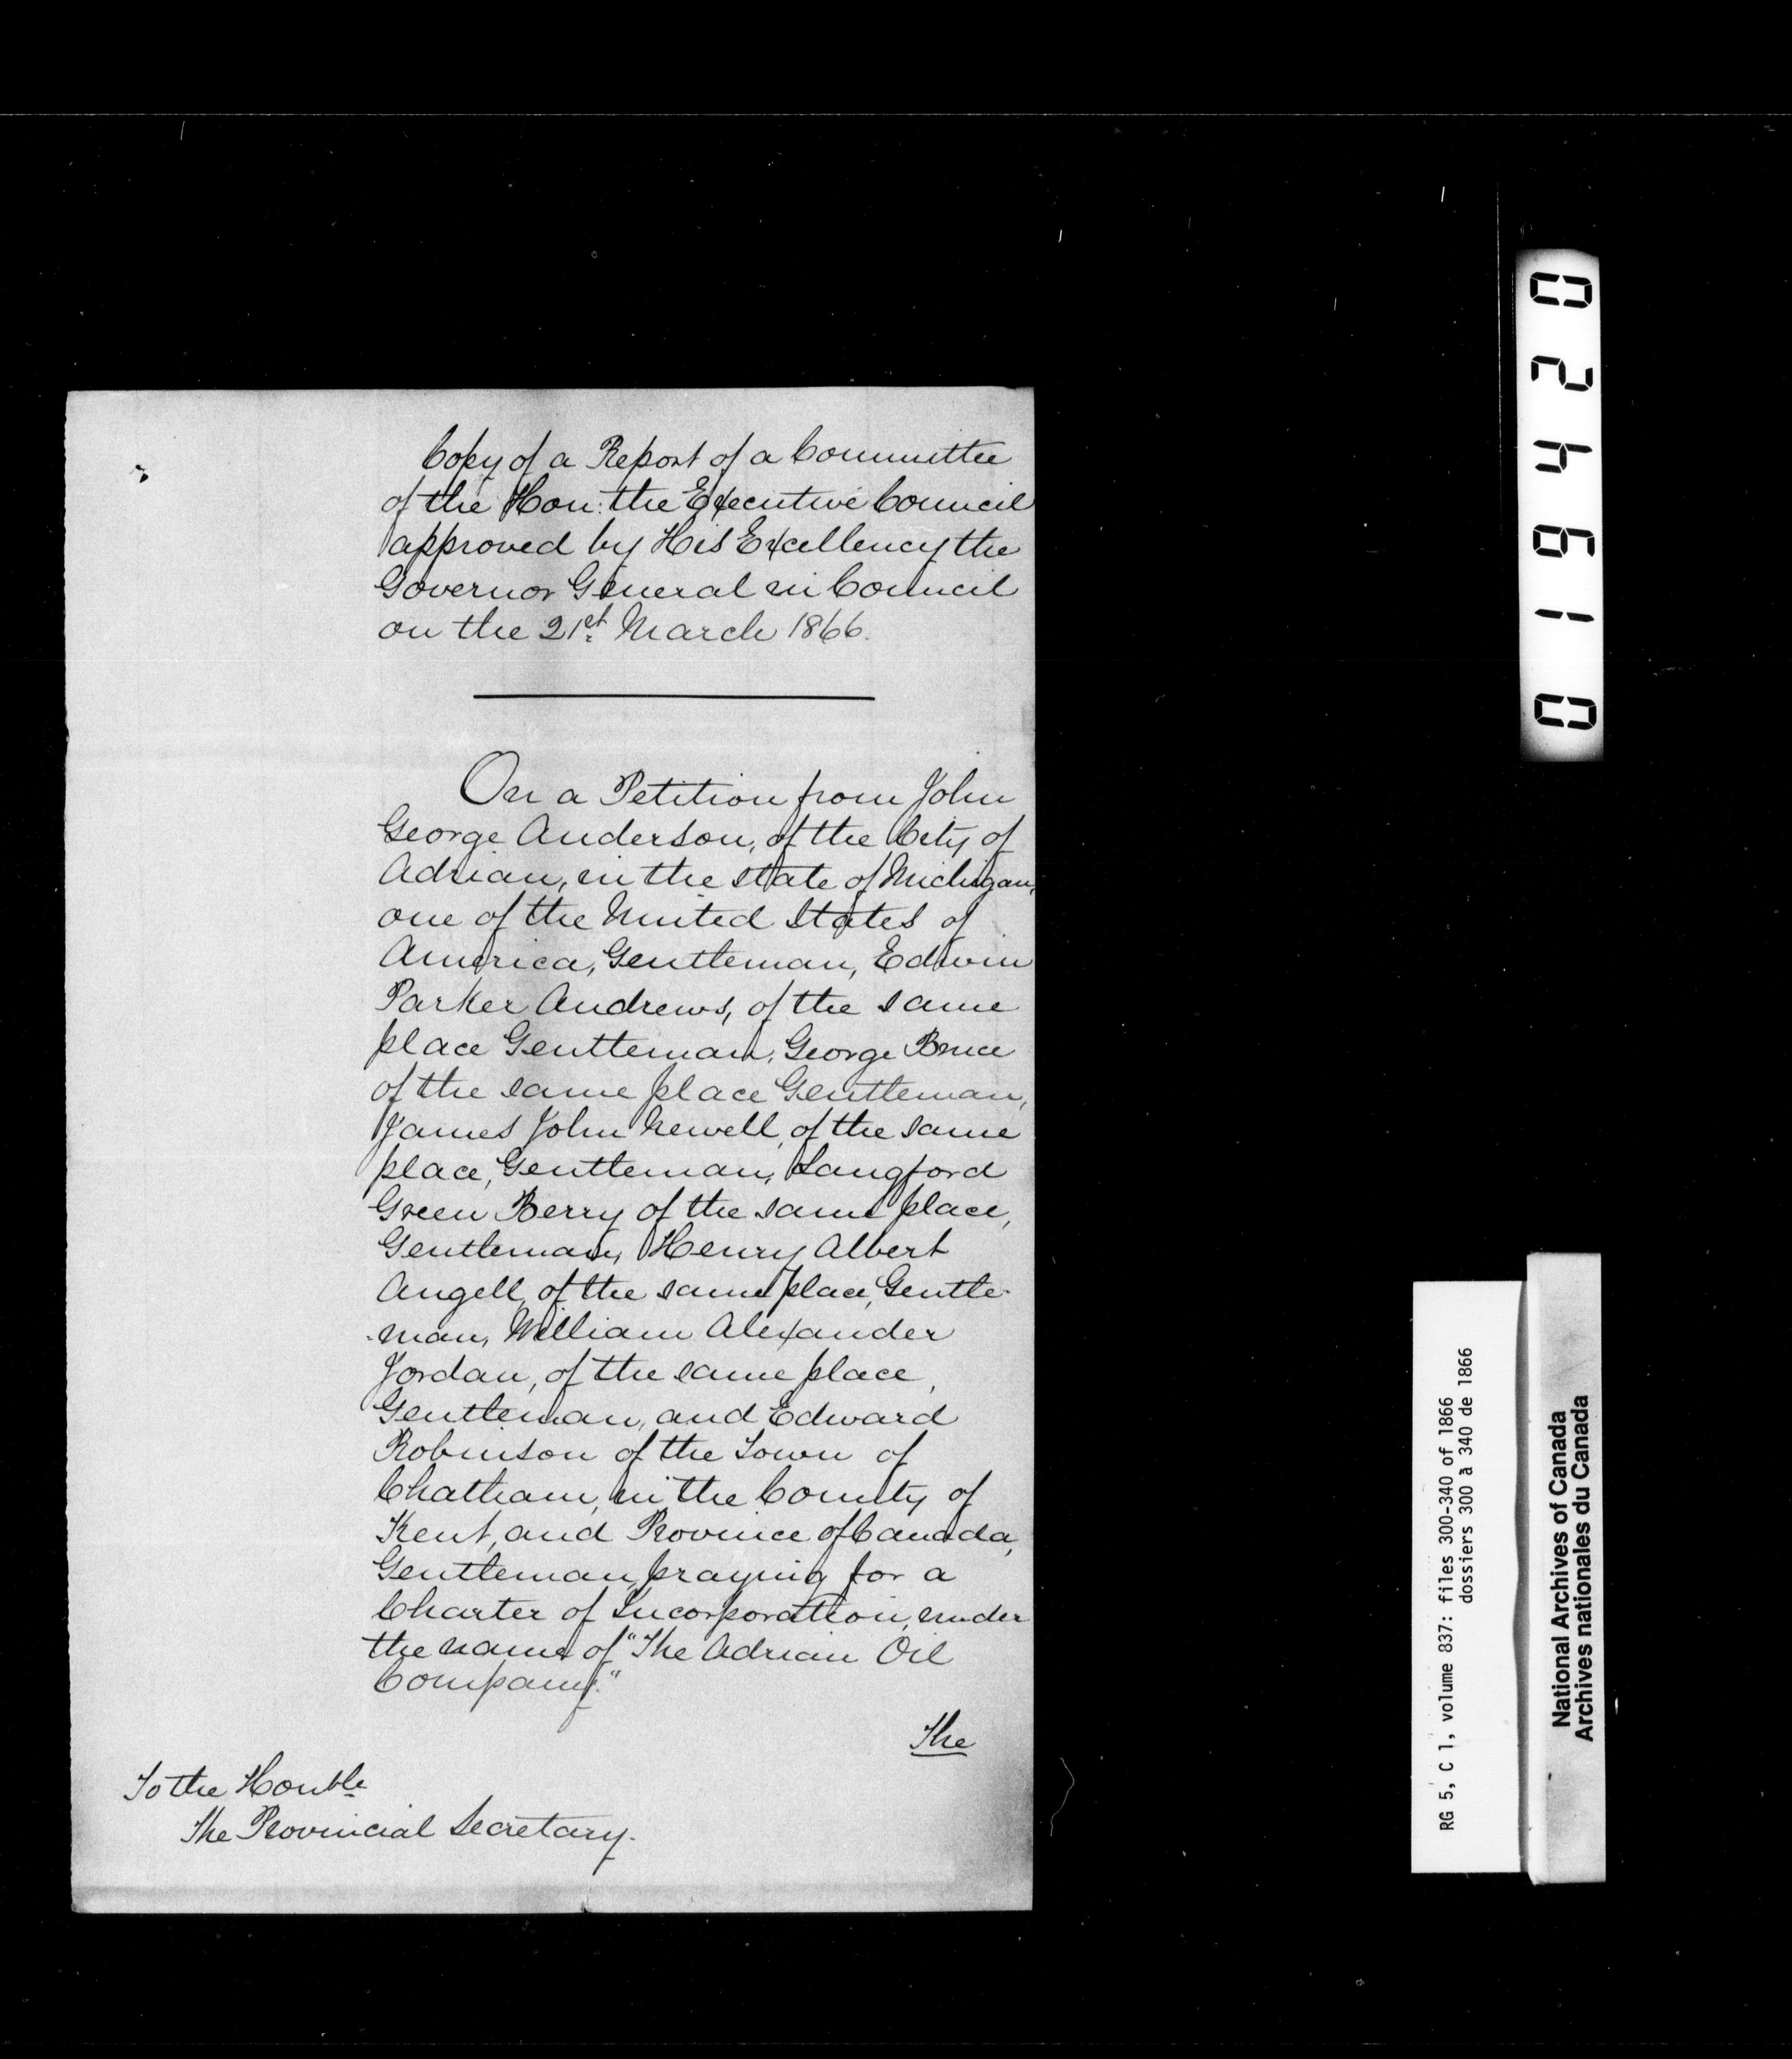 Copy of a Report of a Committee
of the Hon: the Executive Council
approved by His Excellency the
Governor General in Council
on the 21st March 1866.
On a Petition from John
George Anderson, of the City of
Adrian, in the state of Michigan,
one of the United States of
America, Gentleman, Edwin
Parker Andrews, of the same
place Gentleman, George Bruce
of the same place Gentleman,
James John Newell, of the same
place, Gentleman, Langford
Green Berry of the same place,
Gentleman, Henry Albert
Angell, of the same place, Gentle-
-man, William Alexander
Jordan, of the same place,
Gentleman, and Edward
Robinson of the Town of
Chatham, in the County of
Kent, and Province of Canada,
Gentleman, praying for a
Charter of Incorporation, under
the name of "The Adrian Oil
Company."
The
To the Honble
The Provincial Secretary.
024610
RG 5, C 1, volume 837: files 300-340 of 1866
dossiers 300 à 340 de 1866
National Archives of Canada
Archives nationales du Canada